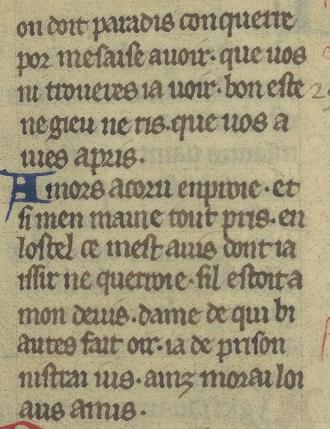 on doit paradis conquerre
por mesaise auoir. que uos
ni troueres ia uoir. bon este
ne gieu ne ris. que uos a
uies apris.
Amors a coru enproie. et
si men maine tout pris. en
lostel ce mest auis dont ia
issir ne querroie. sil estoit a
mon deuis. dame de qui bi
autes fait oir. ia de prison
nistrai uis. ainz morai loi
aus amis.